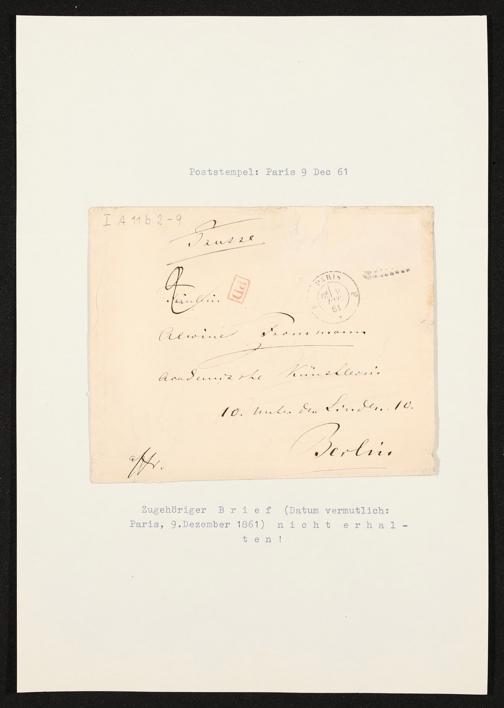 Poststempel: Paris 9 Dec 61
I A 11 b 2-9
Prusse
Fräulein
PD
PARIS
9
DEC
61
Alwine Frommann
Academische Künstlerin
10. Unter den Linden. 10.
Berlin
affr.
Zugehöriger B r i e f (Datum vermutlich:
Paris, 9.Dezember 1861) n i c h t e r h a l -
t e n !